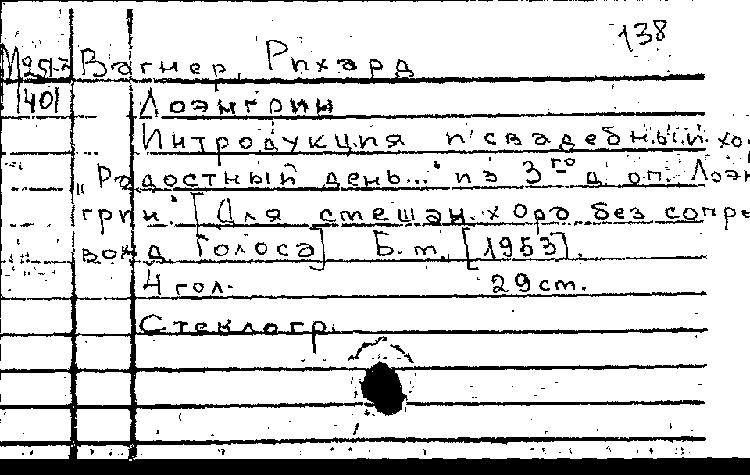 138
М257 Вагнер, Рихард
1401 Лоэнгрин
Интродукция и свадебный хо.
„Радостный день..." из 3го д. оп. Лоэн
грин". [Для смешан. хора без сопро
вожд Голоса] Б.м. [1953].
4 гол. 29 см.
Стеклогр.